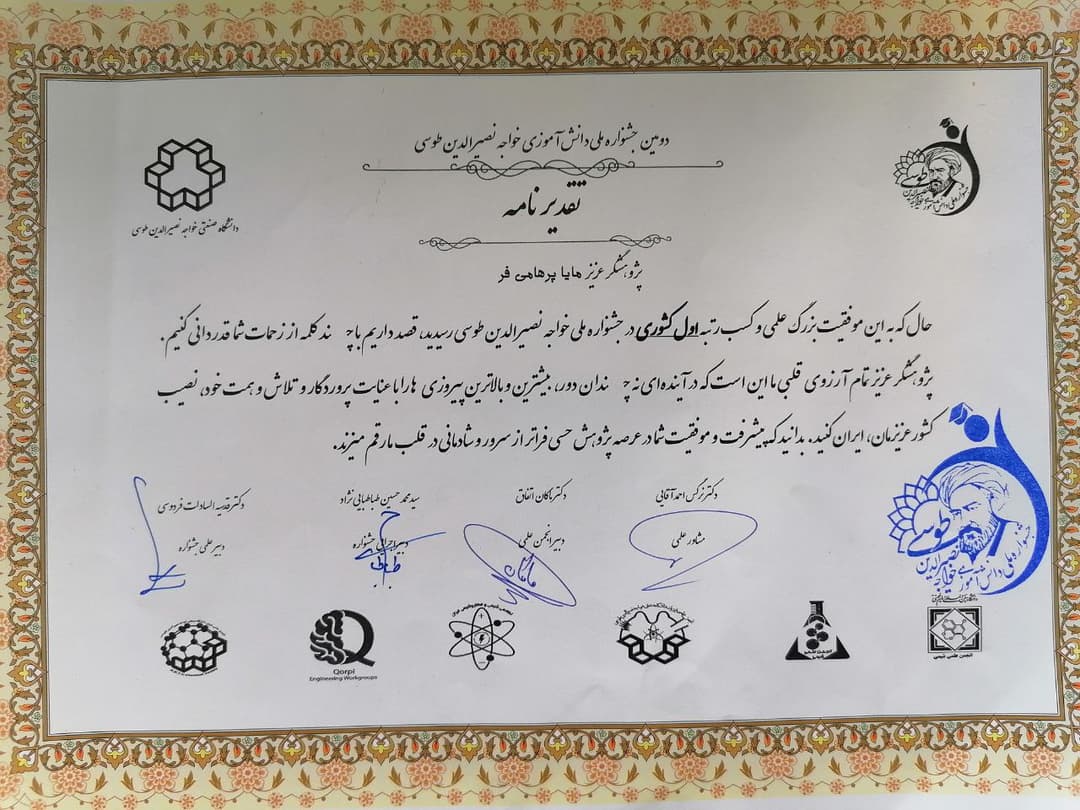 دومین جشنواره ملی دانش آموزی خواجه نصیرالدین طوسی
تقدیر نامه
دانشگاه صنعتی خواجه نصیرالدین طوسی
پژوهشگر عزیز مایا پرهامی فر
حال که به این موفقیت بزرگ علمی و کسب رتبه اول کشوری در جشنواره ملی خواجه نصیرالدین طوسی رسیدید، قصد داریم با چند کلمه از زحمات شما قدردانی کنیم.
پژوهشگر عزیز تمام آرزوی قلبی ما این است که در آینده‌ای نه چندان دور، بیشترین و بالاترین پیروزی هارا با عنایت پروردگار و تلاش و همت خود، نصیب
کشور عزیزمان، ایران کنید. بدانید که پیشرفت و موفقیت شما در عرصه پژوهش حسی فراتر از سرور و شادمانی در قلب ما رقم میزند.
دکتر نرکس احمد آقایی
دکتر ماکان اتفاق
سید محمد حسین طباطبایی نژاد
دکتر قدسیه السادات فردوسی
مشاور علمی
دبیر انجمن علمی
دبیر اجرایی جشنواره
دبیر علمی جشنواره
طوسی
جشنواره ملی دانش آموزی خواجه نصیرالدین
Qorpi
Engineering Workgroups
انجمن علمی شیمی